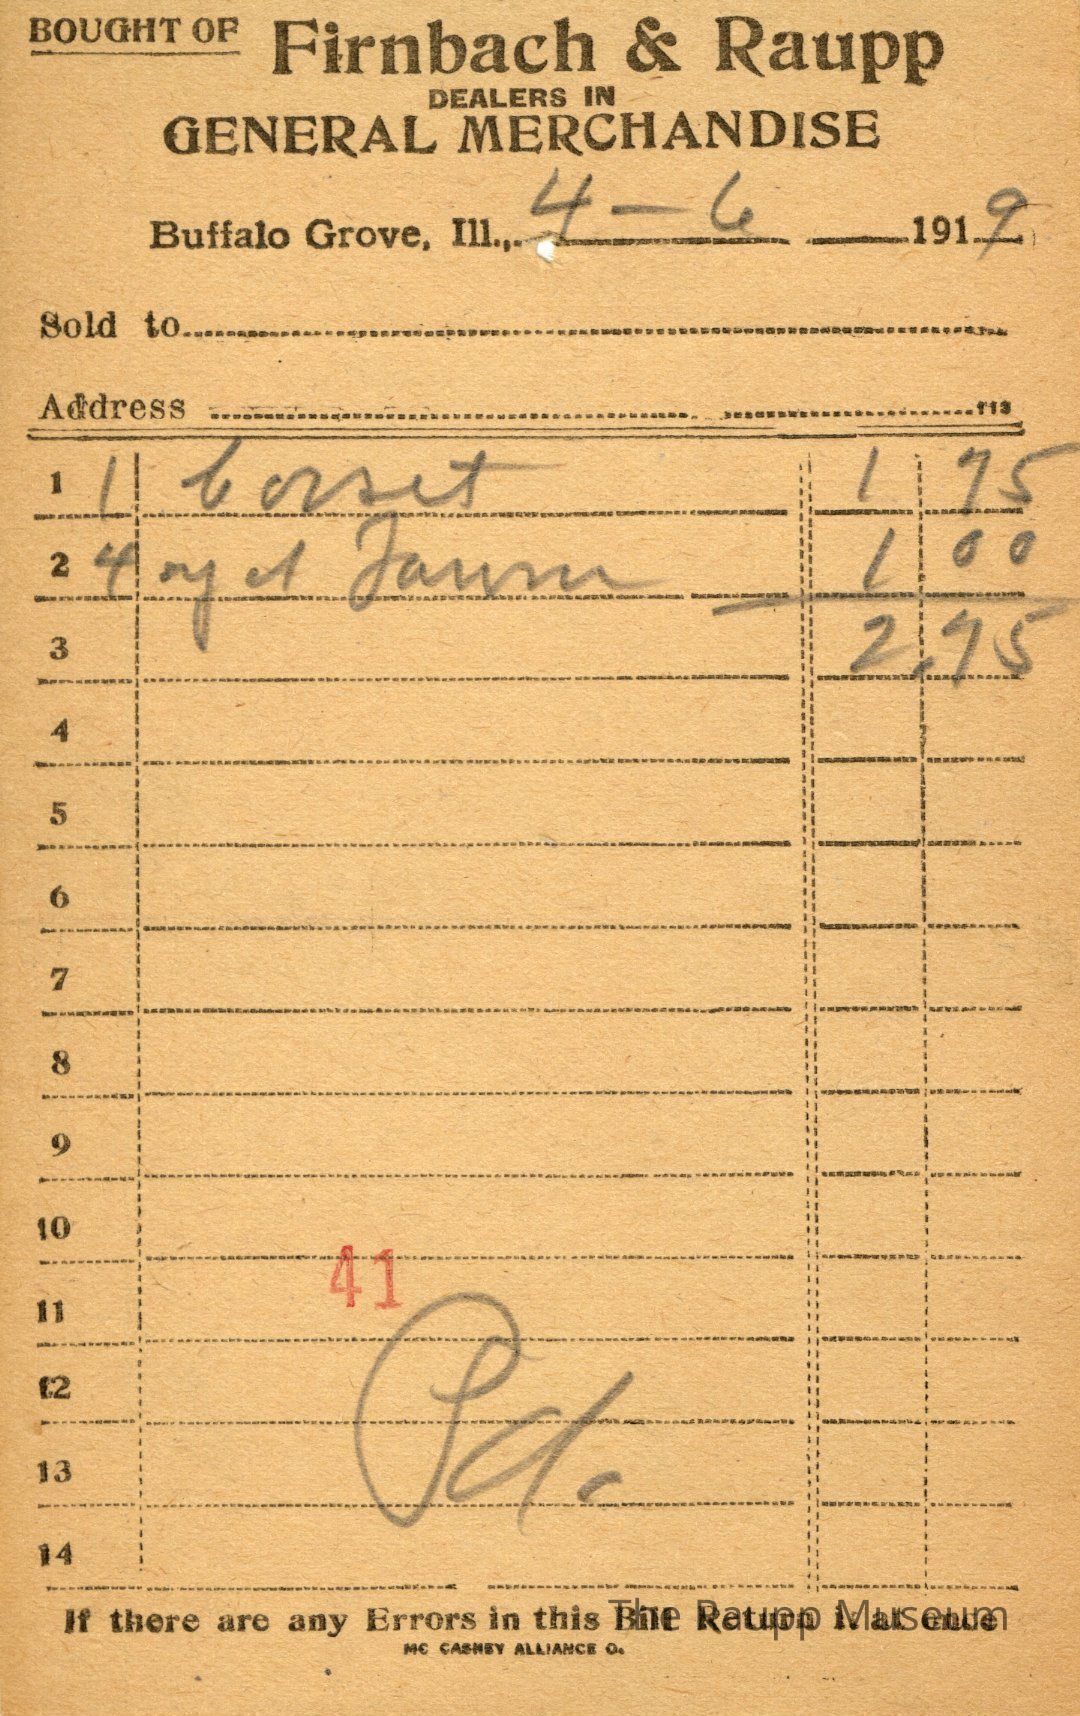 BOUGHT OF Firnbach & Raupp
DEALERS IN
GENERAL MERCHANDISE
Buffalo Grove, Ill., 4 - 6 1919
Sold to
Address 113
1 1 Corset 1 75
2 4 yd 1 00
3 2.75
4
5
6
7
8
9
10
41
11
12
Pd.
13
14
If there are any Errors in this Bill Return it at once
The Raupp Museum
MC CASKEY ALLIANCE O.